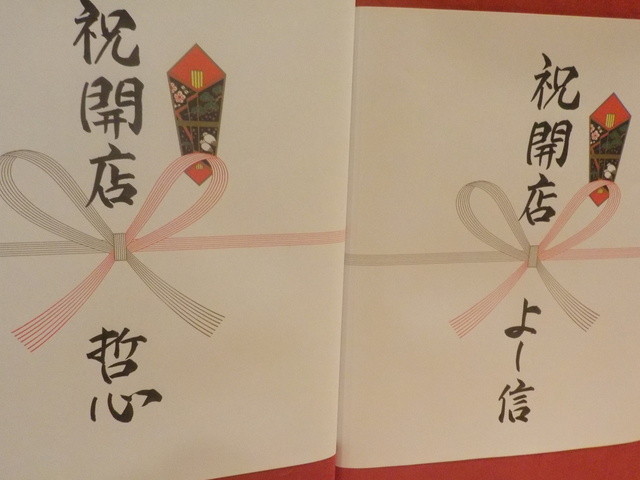 祝開店
哲心
祝開店
よし信